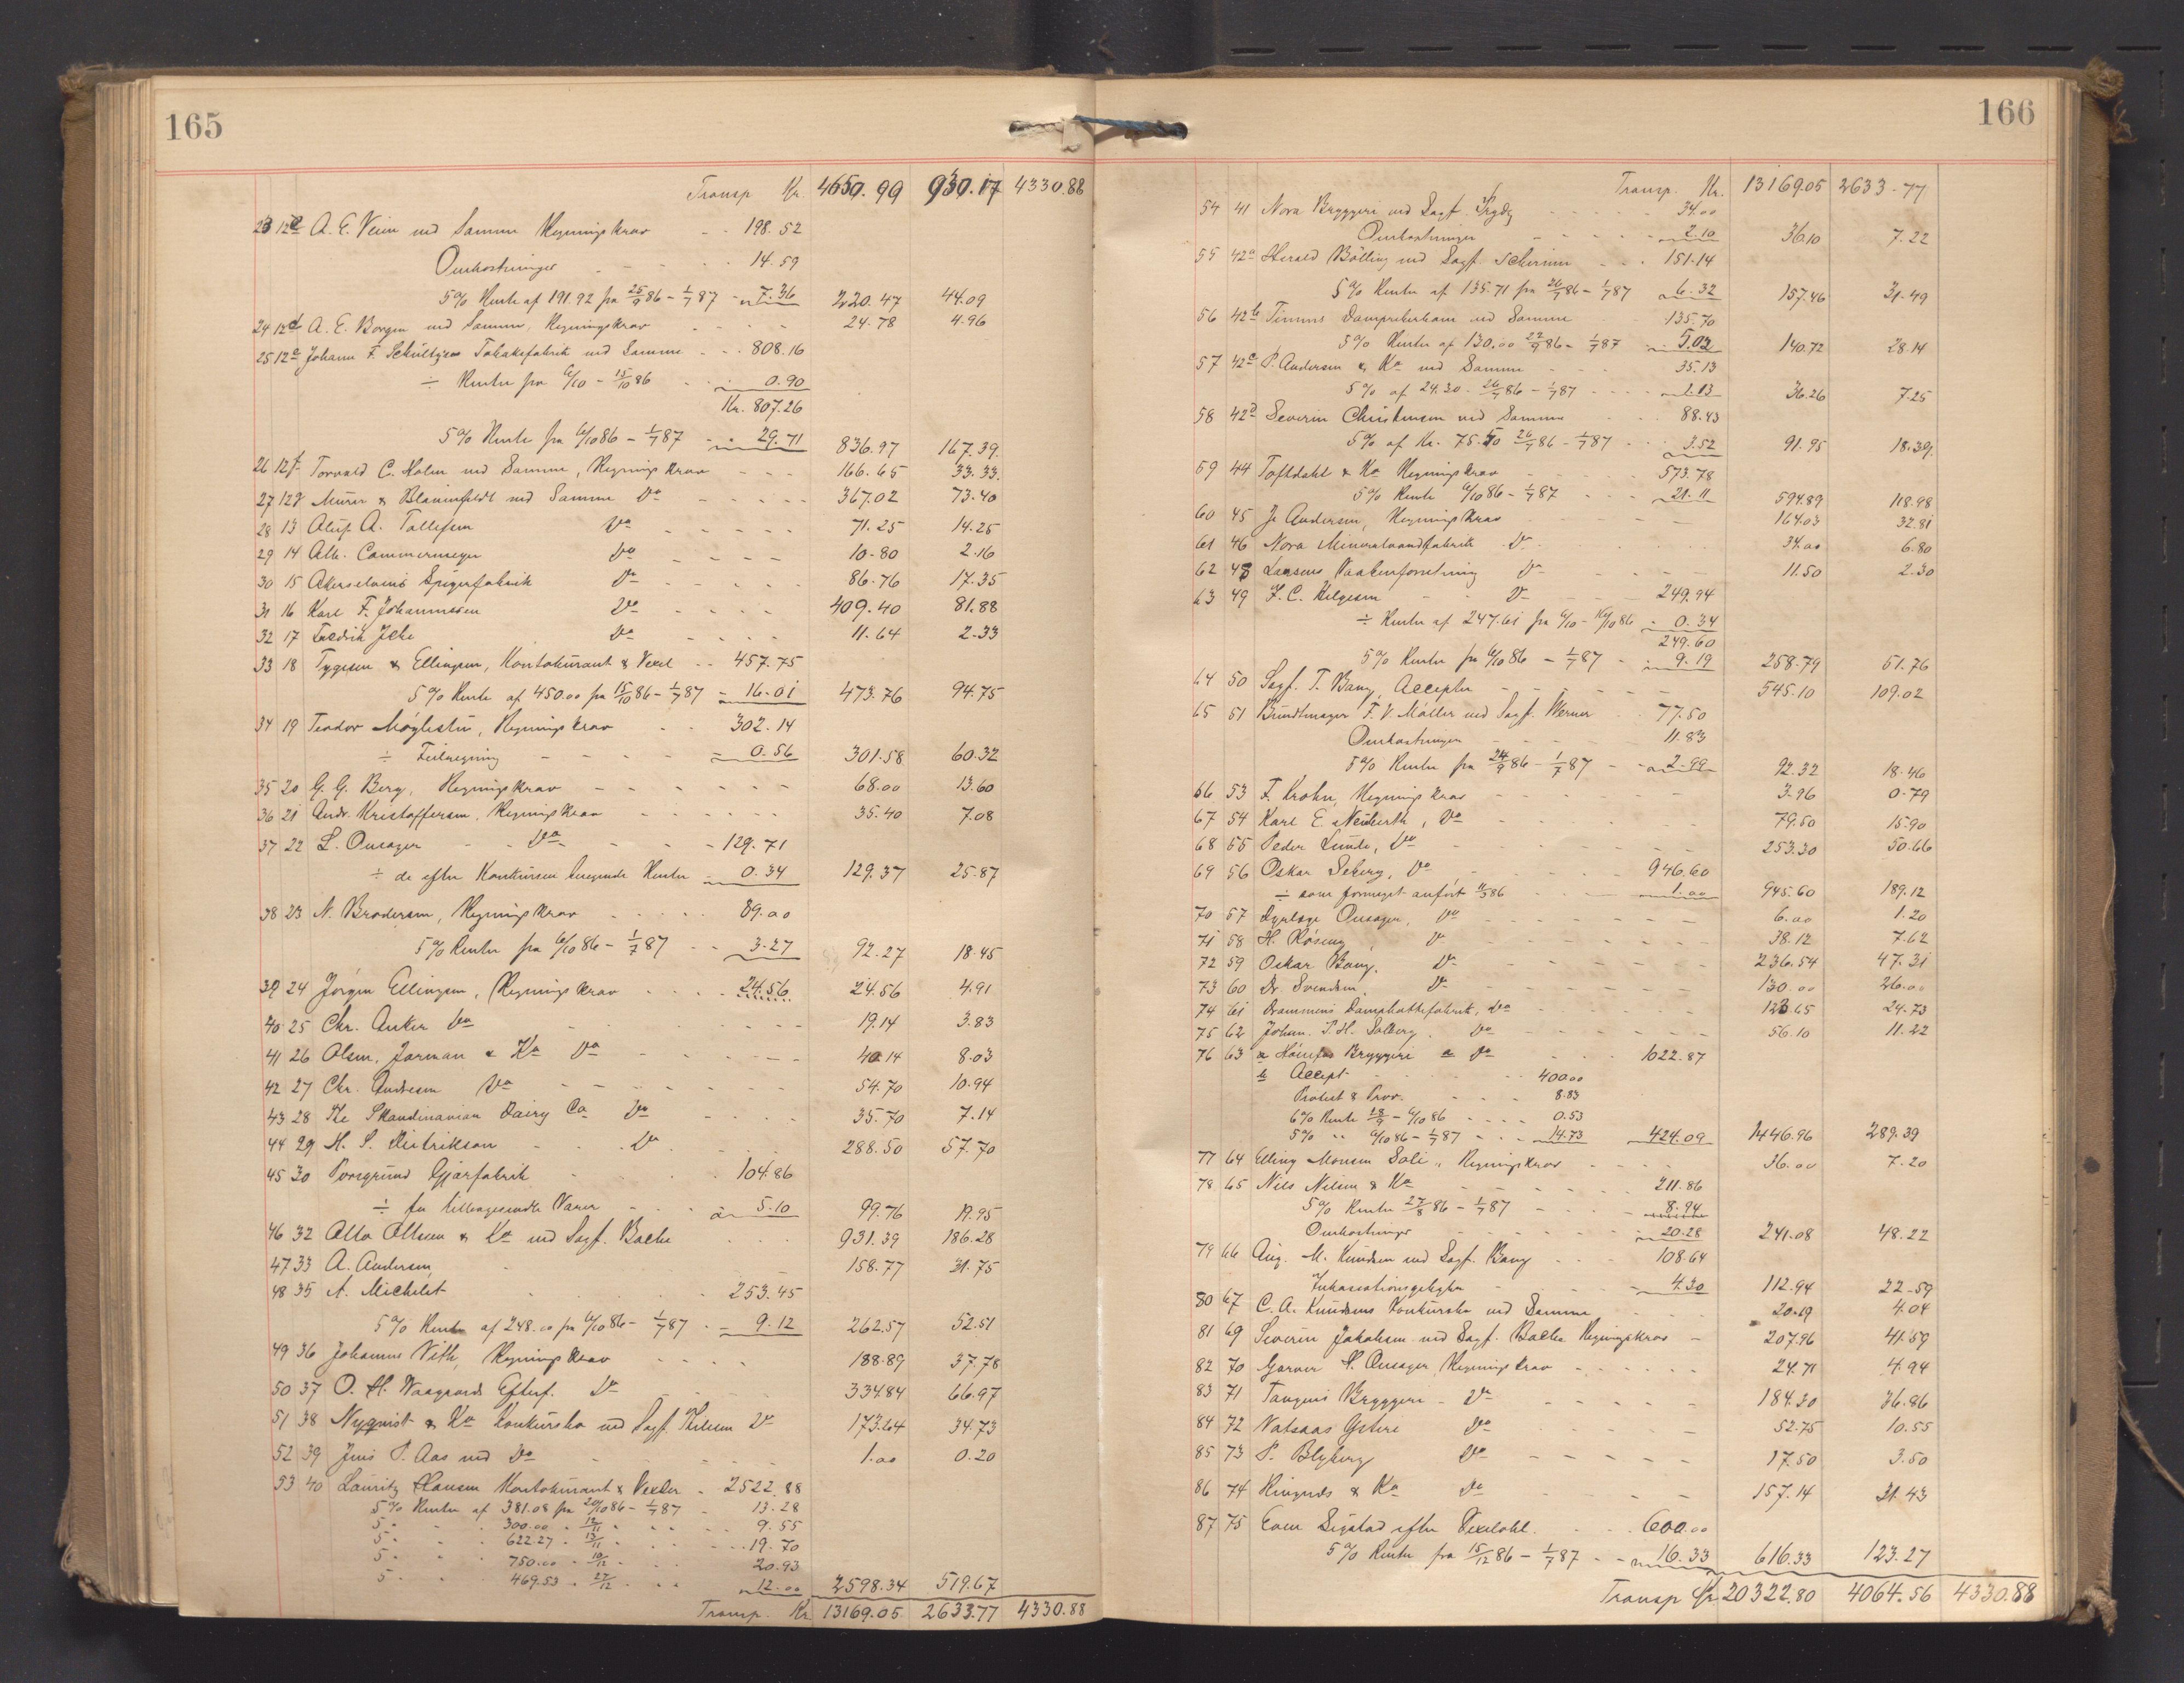 165
Transp Kr. 4650.99 930.17 4330.88
23 12c A. E. Veium ved Samme Regningskrav 198.52
Omkostninger 14.59
5% Rente af 191.92 fra 25/9 86 - 1/7 87 - 7.36 220.47 44.09
24 12d A. E. Borgen ved Samme, Regningskrav 24.78 4.96
25 12e Johann F. Schultzes Tobaksfabrik ved Samme 808.16
÷ Renter fra 6/10 - 15/10 86 0.90
Kr. 807.26
5% Rente fra 6/10 86 - 1/7 87 29.71 836.97 167.39
26 12f Torvald C. Holm ved Samme, Regningskrav 166.65 33.33
27 12g Murer & Blauenfeldt ved Samme Do 367.02 73.40
28 13 Aluf A. Tollefsen Do 71.25 14.25
29 14 Alb. Cammermeyer Do 10.80 2.16
30 15 Akerselvens Spigerfabrik Do 86.76 17.35
31 16 Karl F. Johannessen Do 409.40 81.88
32 17 Fredrik Do 11.64 2.33
33 18 Tygesen & Ellingsen, Kontokurant & Vexel 457.75
5% Rente af 450.00 fra 15/10 86 - 1/7 87 - 16.01 473.76 94.75
34 19 Teodor Møglestu, Regningskrav 302.14
÷ Feilregning 0.56 301.58 60.32
35 20 G. G. Berg, Regningskrav 68.00 13.60
36 21 Andr. Kristoffersen, Regningskrav 35.40 7.08
37 22 L. Onsager Do 129.71
÷ de efter Konkursen beregnede Renter 0.34 129.37 25.87
38 23 N. Brodersen, Regningskrav 89.00
5% Renter fra 6/10 86 - 1/7 87 3.27 92.27 18.45
39 24 Jørgen Ellingsen, Regningskrav 24.56 24.56 4.91
40 25 Chr. Anker Do 19.14 3.83
41 26 Olsen, Jorman & Ko Do 40.14 8.03
42 27 Chr. Andresen Do 54.70 10.94
43 28 The Skandinavian Dairy Co Do 35.70 7.14
44 29 H. S. Didrikson Do 288.50 57.70
45 30 Porsgrund Gjærfabrik 104.86
÷ for tilbagesendte Varer 5.10 99.76 19.95
46 32 Otto Ottesen & Ko ved Sagf. Bache 931.39 186.28
47 33 A. Andersen 158.77 31.75
48 35 A. Michelet 253.45
5% Rente af 248.00 fra 6/10 86 - 1/7 87 - 9.12 262.57 52.51
49 36 Johannes Vith, Regningskrav 188.89 37.78
50 37 O. H. Vaagaards Efterf. Do 334.84 66.97
51 38 Nyqvist & Ko Konkursbo ved Sagf. Do 173.64 34.73
52 39 Jens P. Aas ved Do 1.00 0.20
53 40 Lauritz Clausen Kontokurant & Vexler 2522.88
5% Renter af 381.08 fra 20/10 86 - 1/7 87 - 13.28
5 " 300.00 " 12/11 " 9.55
5 " 622.27 " 13/11 " 19.70
5 " 750.00 " 10/12 " 20.93
5 " 469.53 " 27/12 " 12.00 2598.34 519.67
Transp. Kr. 13169.05 2633.77 4330.88
166
Transp. Kr. 13169.05 2633.77
54 41 Nora Bryggeri ved Sagf. 34.00
Omkostninger 2.10 36.10 7.22
55 42a Harald Bölling ved Sagf. Schirmer 151.14
5% Renter af 135.71 fra 26/7 86 - 1/7 87 6.32 157.46 31.49
56 42b Timms ved Samme 135.70
5% Renter af 130.00 22/9 86 - 1/7 87 5.02 140.72 28.14
57 42c P. Andersen & Ko ved Samme 35.13
5% af 24.30 - 26/7 86 - 1/7 87 1.13 36.26 7.25
58 42d Severin Christensen ved Samme 88.43
5% af Kr. 75.50 26/7 86 - 1/7 87 3.52 91.95 18.39
59 44 Toftdahl & Ko Regningskrav 573.78
5% Rente 6/10 86 - 1/7 87 21.11 594.89 118.98
60 45 Jo Andersen, Regningskrav 164.03 32.81
61 46 Nora Mineralvandfabrik Do 34.00 6.80
62 48 Larsens Vaabenforretning Do 11.50 2.30
63 49 F. C. Helgesen Do 249.94
÷ Renter af 247.61 fra 6/10 - 16/10 86 0.34
249.60
5% Renter fra 6/10 86 - 1/7 87 9.19 258.79 51.76
64 50 Sagf. T. Bang, Accepter 545.10 109.02
65 51 Bundtmager F. V. Møller ved Sagf. Werner 77.50
Omkostninger 11.83
5% Renter fra 24/9 86 - 1/7 87 2.99 92.32 18.46
66 53 F. Krohn, Regningskrav 3.96 0.79
67 54 Karl E. Neuberth, Do 79.50 15.90
68 55 Peder Lunde, Do 253.30 50.66
69 56 Oskar Seberg, Do 946.60
÷ som formeget anført 11/3 86 1.00 945.60 189.12
70 57 Dyrlæge Onsager, Do 6.00 1.20
71 58 H. Røseng, Do 38.12 7.62
72 59 Oskar Bang, Do 236.54 47.31
73 60 Dr. Svendsen, Do 130.00 26.00
74 61 Drammens Damphattefabrik, Do 123.65 24.73
75 62 Johan P. H. Solberg, Do 56.10 11.22
76 63 a Hønefos Bryggeri a Do 1022.87
b Accept 400.00
Protest & Prov. 8.83
6% Rente 28/9 - 6/10 86 0.53
5% " 6/10 86 - 1/7 87 14.73 424.09 1446.96 289.39
77 64 Elling Monsen Soli, Regningskrav 36.00 7.20
78 65 Nils Nilsen & Ko 211.86
5% Renter 27/8 86 - 1/7 87 8.94
Omkostninger 20.28 241.08 48.22
79 66 Aug. M. Knudsen ved Sagf. Bang 108.64
Inkassationsgebyhr 4.30 112.94 22.59
80 67 C. A. Knudsens Konkursbo ved Samme 20.19 4.04
81 69 Severin Jakobsen ved Sagf. Bache Regningskrav 207.96 41.59
82 70 Garver H. Onsager, Regningskrav 24.71 4.94
83 71 Tangens Bryggeri Do 184.30 36.86
84 72 Natsaas Ysteri Do 52.75 10.55
85 73 P. Blyberg Do 17.50 3.50
86 74 Ringnes & Ko Do 157.14 31.43
87 75 Even Sigstad efter Vexelobl. 600.00
5% Renter fra 15/12 86 - 1/7 87 16.33 616.33 123.27
Transp Kr 20322.80 4064.56 4330.88